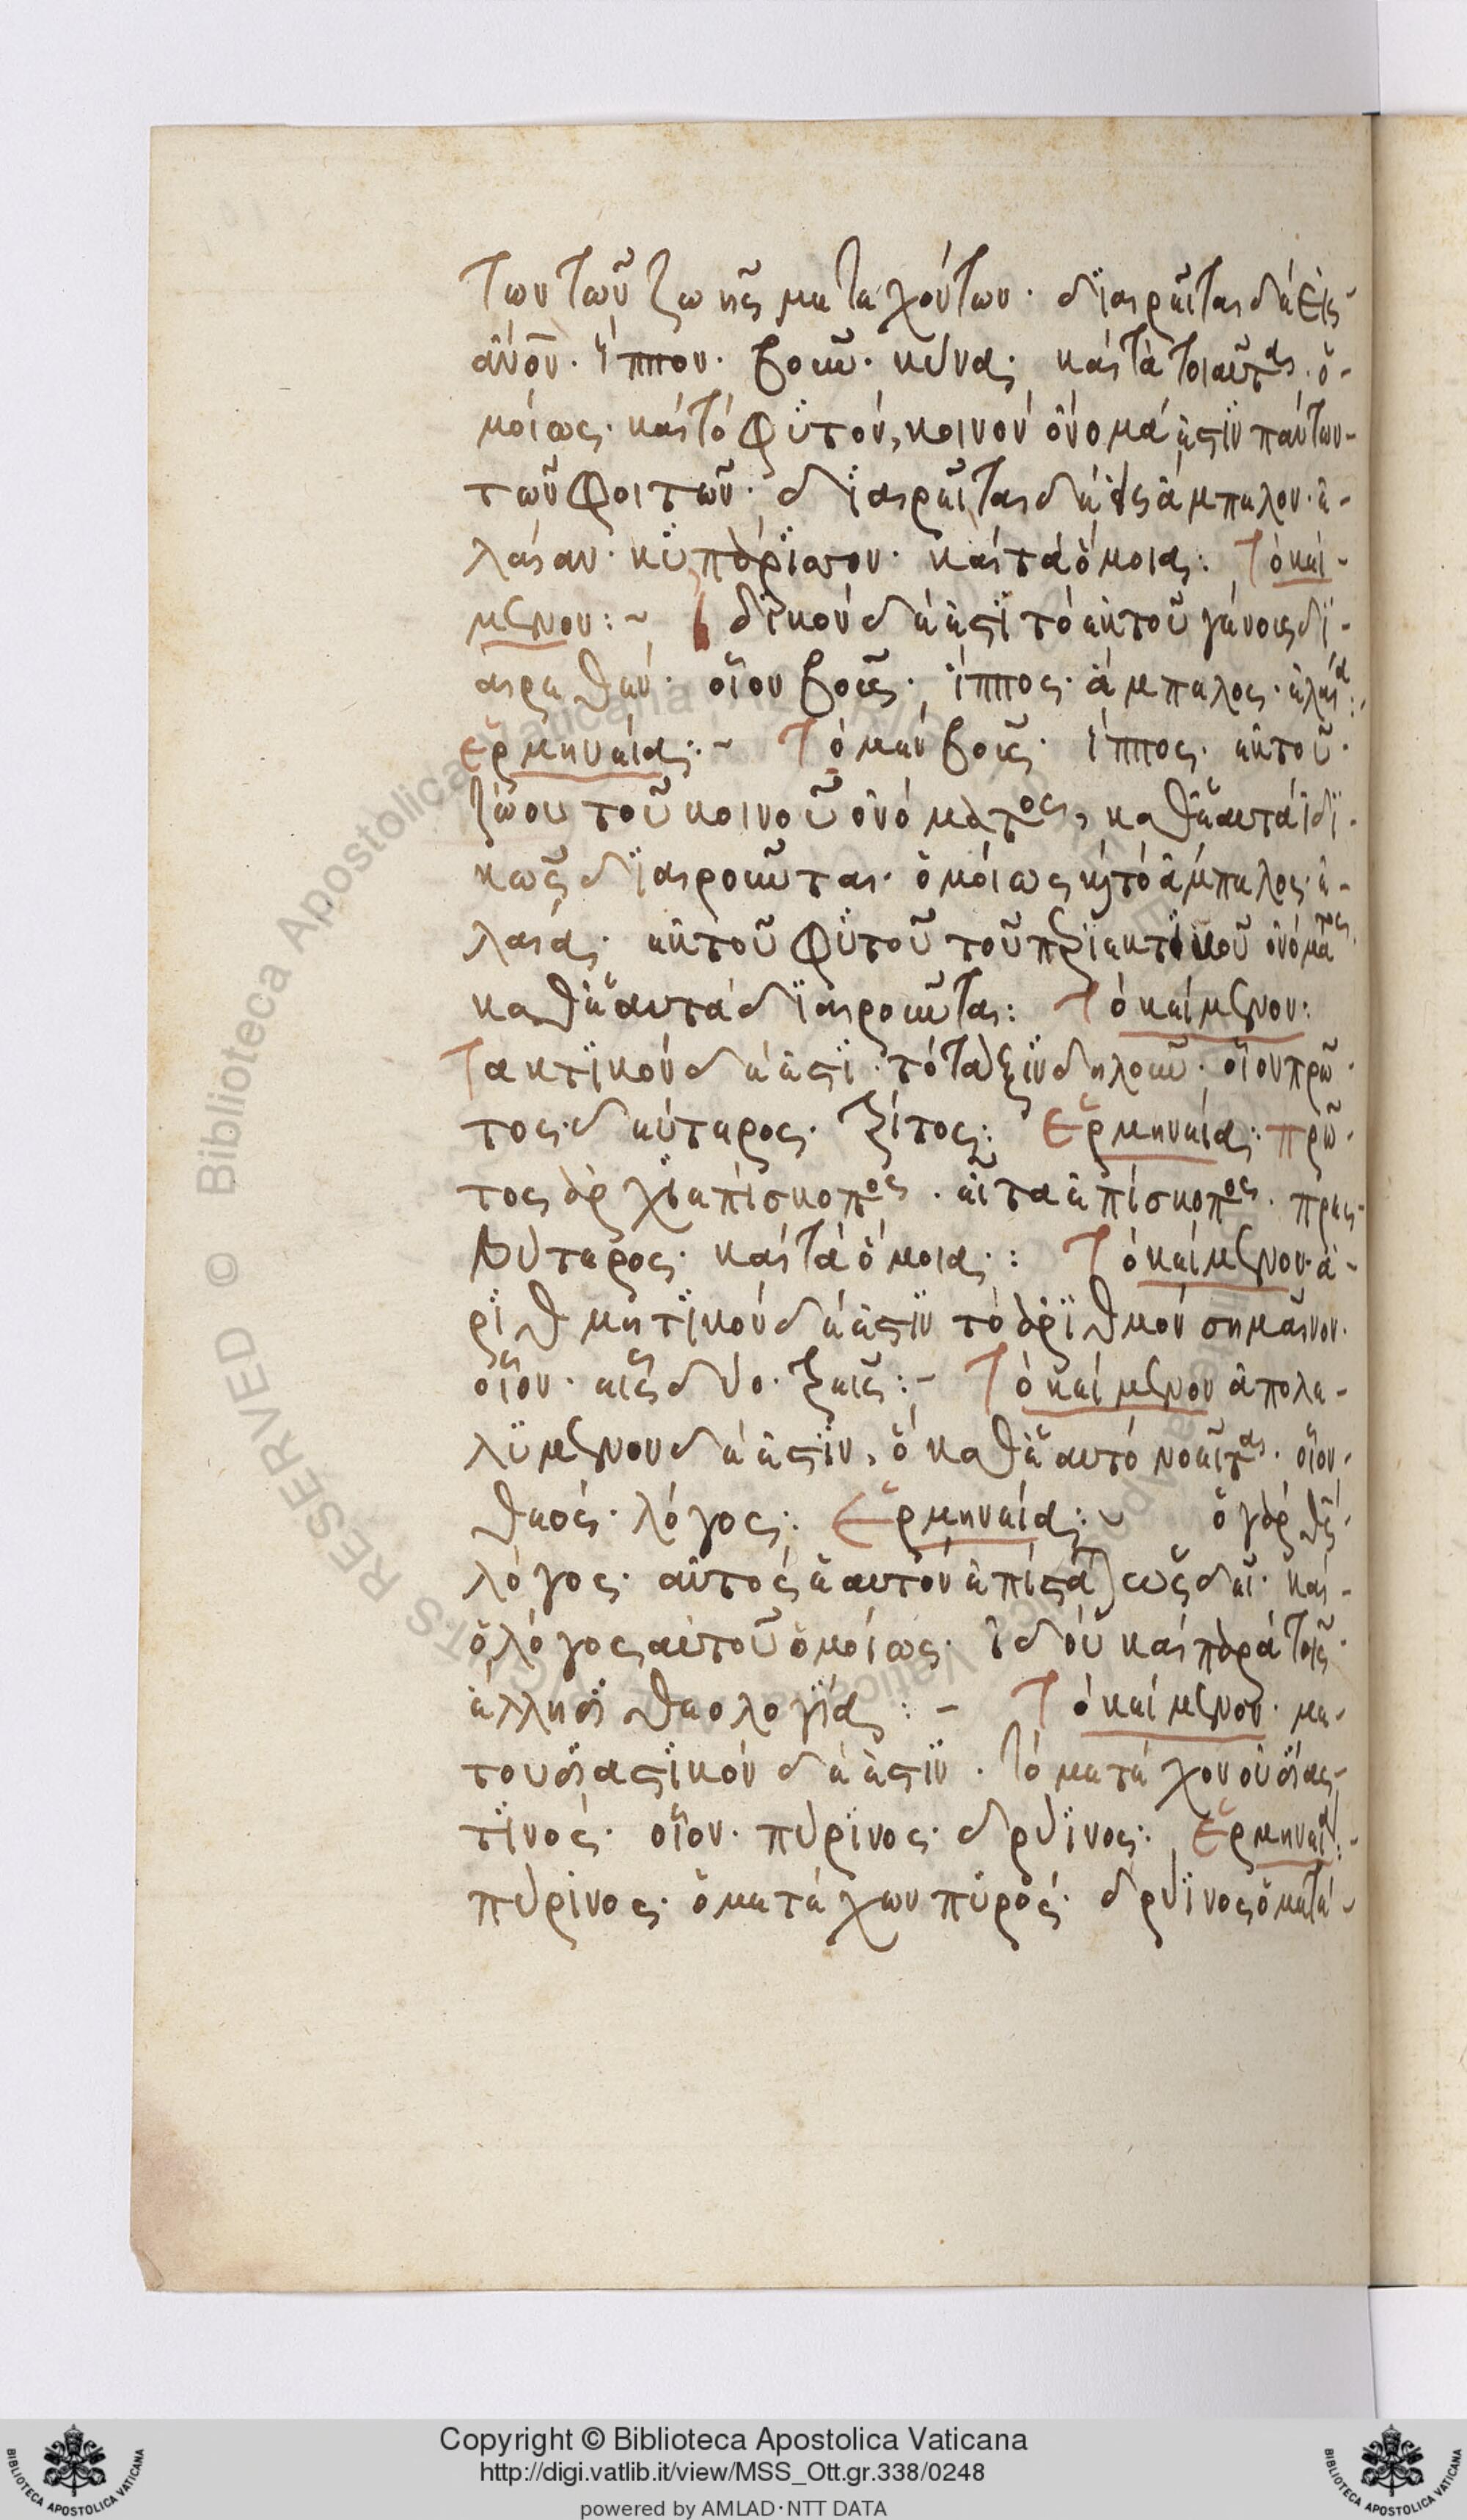 των τῶν ζωῆς μετεχόντων· διαιρεῖται δὲ εἰς
ἄνον· ἵππον· βοῦν· κύνα· καὶ τὰ τοιαῦτα· ὁ-
μοίως· καὶ τὸ φϋτόν, κοινὸν ὄνομά ἐστϊν πάντων
τῶν φοιτῶν· διαιρεῖται δὲ εἰς ἄμπελον· ἐ-
λαίαν· κϋπάρϊσον· καὶ τὰ ὅμοια: Τὸ κεί-
μενον:~ Ἰδϊκὸν δέ ἐστϊ τὸ ἐκ τοῦ γένους δϊ-
αιρεθέν· οἷον βοῦς· ἵππος· ἄμπελος· ἐλαία:
ἑρμηνεία:~ Τὸ μὲν βοῦς· ἵππος· ἐκ τοῦ
ζώου τοῦ κοινοῦ ὀνόματος, καθ' ἑαυτὰ ἰδϊ-
κῶς διαιροῦται· ὁμοίως κ̀ τὸ ἄμπελος· ἐ-
λαία· ἐκ τοῦ φϋτοῦ τοῦ περϊεκτϊκοῦ ὀνόματος
καθ' ἑαυτὰ δϊαιροῦται: Τὸ κείμενον:
Τακτϊκὸν δέ ἐστϊ· τὸ τάξϊν δηλοῦν· οἷον πρῶ-
τος· δεύτερος· τρίτος: Ἑρμηνεία: πρῶ-
τος ἀρχϊεπίσκοπος· εἶτα ἐπίσκοπος· πρεσ-
βύτερος· καὶ τὰ ὅμοια: Τὸ κείμενον· ἀ-
ρϊθμητϊκὸν δέ ἐστϊν τὸ ἀρϊθμὸν σημαῖνον·
οἷον· εἷς δύο· τρεῖς:- Τὸ κείμενον ἀπολε-
λϋμενον δέ ἐστϊν, ὃ καθ' ἑαυτὸ νοεῖται· οἷον·
θεός· λόγος: Ἑρμηνεία:~ ὁ γὰρ θς
λόγος· αὐτὸς ἑαυτὸν ἐπίσταται ὡς δεῖ· καὶ
ὁ λόγος αὐτοῦ ὁμοίως· ἰδοὺ καὶ παρὰ τοῖς
ἕλλησϊ θεολογϊά:- Τὸ κείμενον· με-
τουσϊαστϊκὸν δέ ἐστϊν· τὸ μετέχον οὐσϊας
τϊνός· οἷον· πύρϊνος· δρύϊνος: Ἑρμηνεία:-
πύρϊνος· ὁ μετέχων πϋρός· δρύϊνος ὁ μετέ-
Copyright © Biblioteca Apostolica Vaticana
http://digi.vatlib.it/view/MSS_Ott.gr.338/0248
powered by AMLAD·NTT DATA